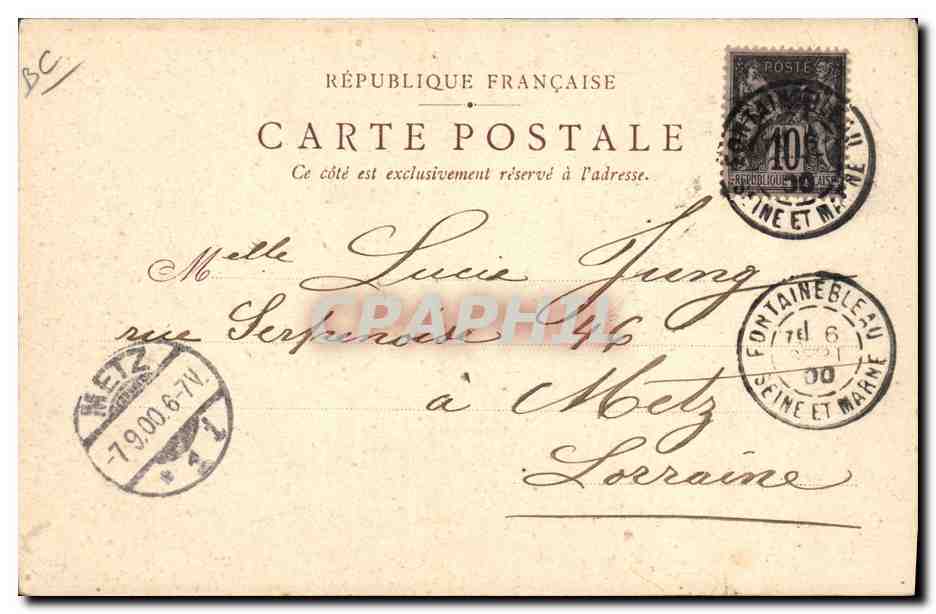 BC
RÉPUBLIQUE FRANÇAISE
CARTE POSTALE
Ce côté est exclusivement réservé à l'adresse.
POSTE
10
RÉPUBLIQUE FRANÇAISE
FONTAINEBLEAU
00
SEINE ET MARNE
Melle Lucie Jung
rue Serpenoise 46
à Metz
Lorraine
CPAPHIL
FONTAINEBLEAU
6
SEPT
00
SEINE ET MARNE
METZ
-7.9.00.6-7V.
* 1 1